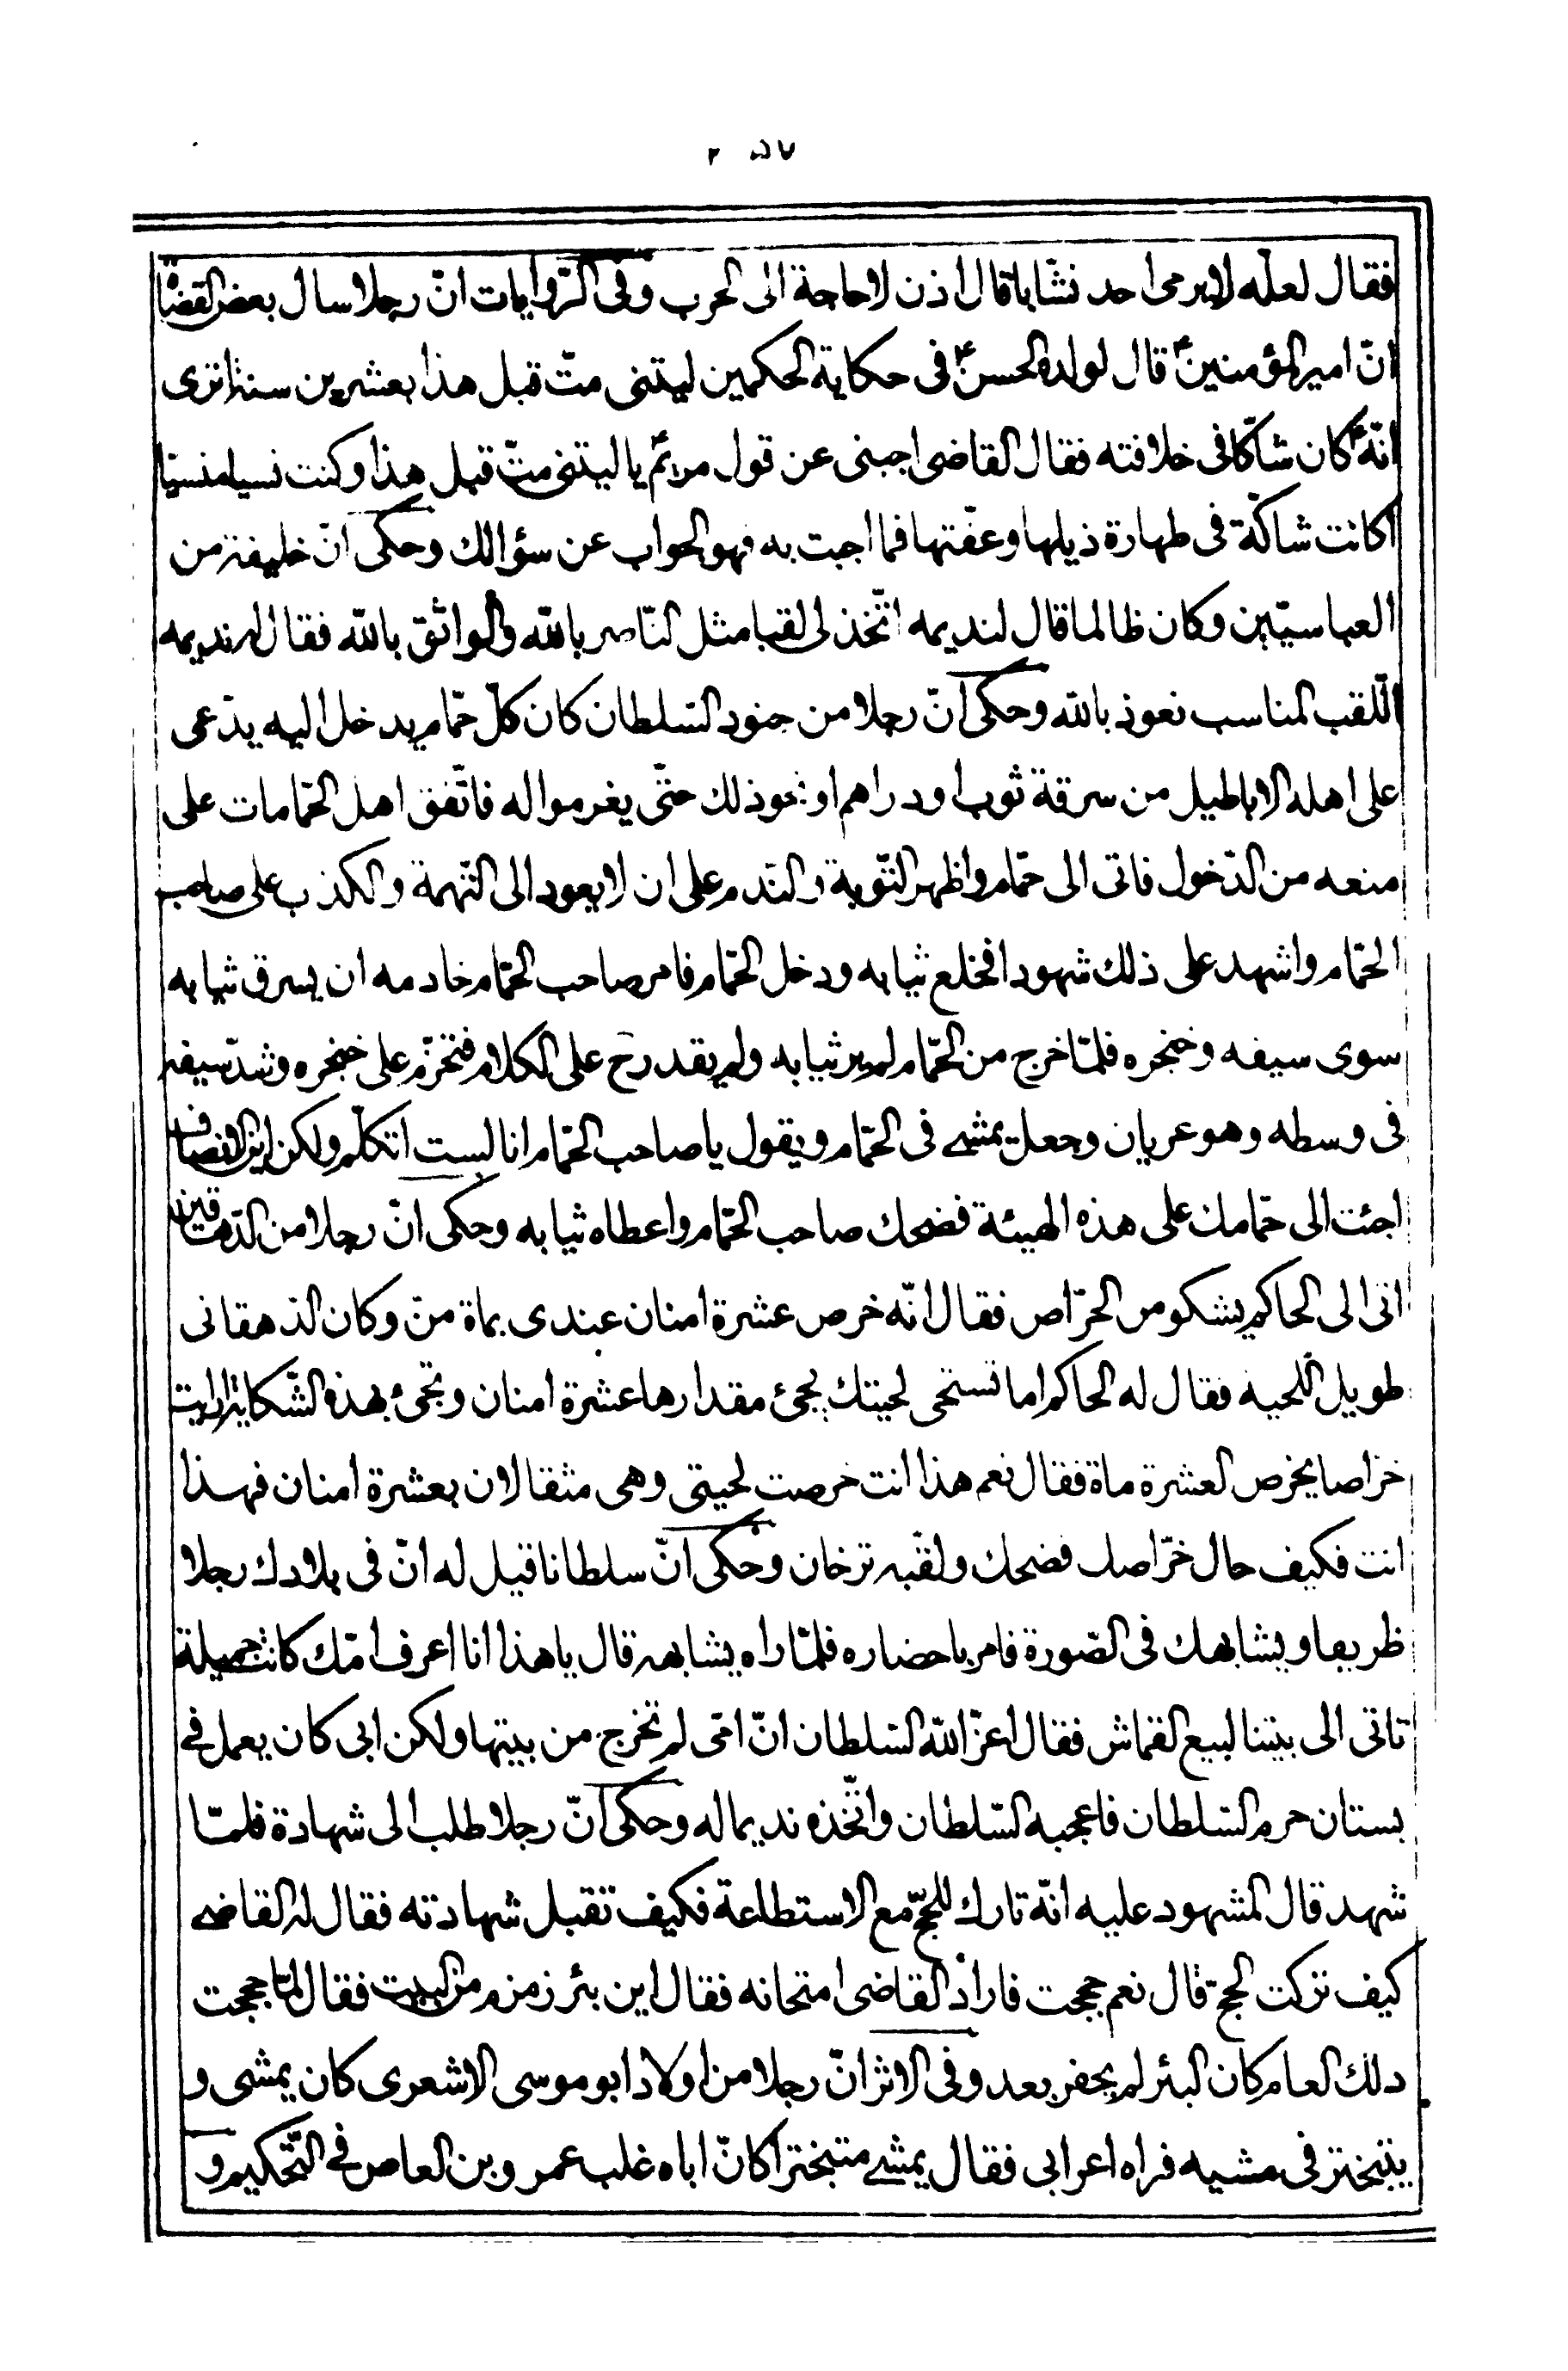 ٢٥٧
فقال لعلّه لا يرمى احد نشّابا قال اذن لا حاجة الى الحرب وفى الرّوايات انّ رجلا سال بعض القضاة
انّ امير المؤمنين ع قال لولده الحسن ع فى حكاية الحكمين ليتنى متّ قبل هذا بعشرين سنة اترى
انّه ع كان شاكّا فى خلافته فقال القاضى اجبنى عن قول مريم ع يا ليتنى متّ قبل هذا وكنت نسيا منسيّا
اكانت شاكّة فى طهارة ذيلها وعفّتها فما اجبت به فهو الجواب عن سؤالك وحكى انّ خليفة من
العباسيّين وكان ظالما قال لنديمه اتّخذ لى لقبا مثل النّاصر بالله والواثق بالله فقال له نديمه
اللّقب المناسب نعوذ بالله وحكى انّ رجلا من جنود السّلطان كان كلّ حمّام يدخل اليه يدّعى
على اهله الاباطيل من سرقة ثوب او دراهم او نحو ذلك حتّى يغرموا له فاتّفق اهل الحمّامات على
منعه من الدّخول فاتى الى حمّام واظهر التّوبة والنّدم على ان لا يعود الى التّهمة والكذب على صاحب
الحمّام واشهد على ذلك شهودا فخلع ثيابه ودخل الحمّام فامر صاحب الحمّام خادمه ان يسرق ثيابه
سوى سيفه وخنجره فلمّا خرج من الحمّام لم ير ثيابه ولم يقدر ح على الكلام فتحزّم على خنجره وشدّ سيفه
فى وسطه وهو عريان وجعل يمشى فى الحمّام ويقول يا صاحب الحمّام انا لست اتكلّم ولكن اين الانصاف
اجئت الى حمّامك على هذه الهيئة فضحك صاحب الحمّام واعطاه ثيابه وحكى انّ رجلا من الدّهاقين
اتى الى الحاكم يشكو من الخرّاص فقال انّه خرص عشرة امنان عندى بماة منّ وكان الدّهقانى
طويل اللّحية فقال له الحاكم اما تستحى لحيتك يجئ مقدارها عشرة امنان وتجئ بهذه الشّكاية ارايت
خرّاصا يخرص العشرة ماة فقال نعم هذا انت خرصت لحيتى وهى مثقالان بعشرة امنان فهذا
انت فكيف حال خرّاصك فضحك ولقّبه ترخان وحكى انّ سلطانا قيل له انّ فى بلادك رجلا
ظريفا ويشابهك فى الصّورة فامر باحضاره فلمّا راه يشابهه قال يا هذا انا اعرف امّك كانت جميلة
تاتى الى بيتنا لبيع القماش فقال اعزّ الله السّلطان انّ امّى لم تخرج من بيتها ولكن ابى كان يعمل فى
بستان حرم السّلطان فاعجبه السّلطان واتّخذه نديما له وحكى انّ رجلا طلب الى شهادة فلمّا
شهد قال المشهود عليه انّه تارك للحجّ مع الاستطاعة فكيف تقبل شهادته فقال له القاضى
كيف تركت الحج قال نعم حججت فاراد القاضى امتحانه فقال اين بئر زمزم من البيت فقال لمّا حججت
ذلك العام كان البئر لم يحفر بعد وفى الاثر انّ رجلا من اولاد ابو موسى الاشعرى كان يمشى و
يتبختر فى مشيه فراه اعرابى فقال يمشى متبخترا كانّ اباه غلب عمرو بن العاص فى التّحكيم و